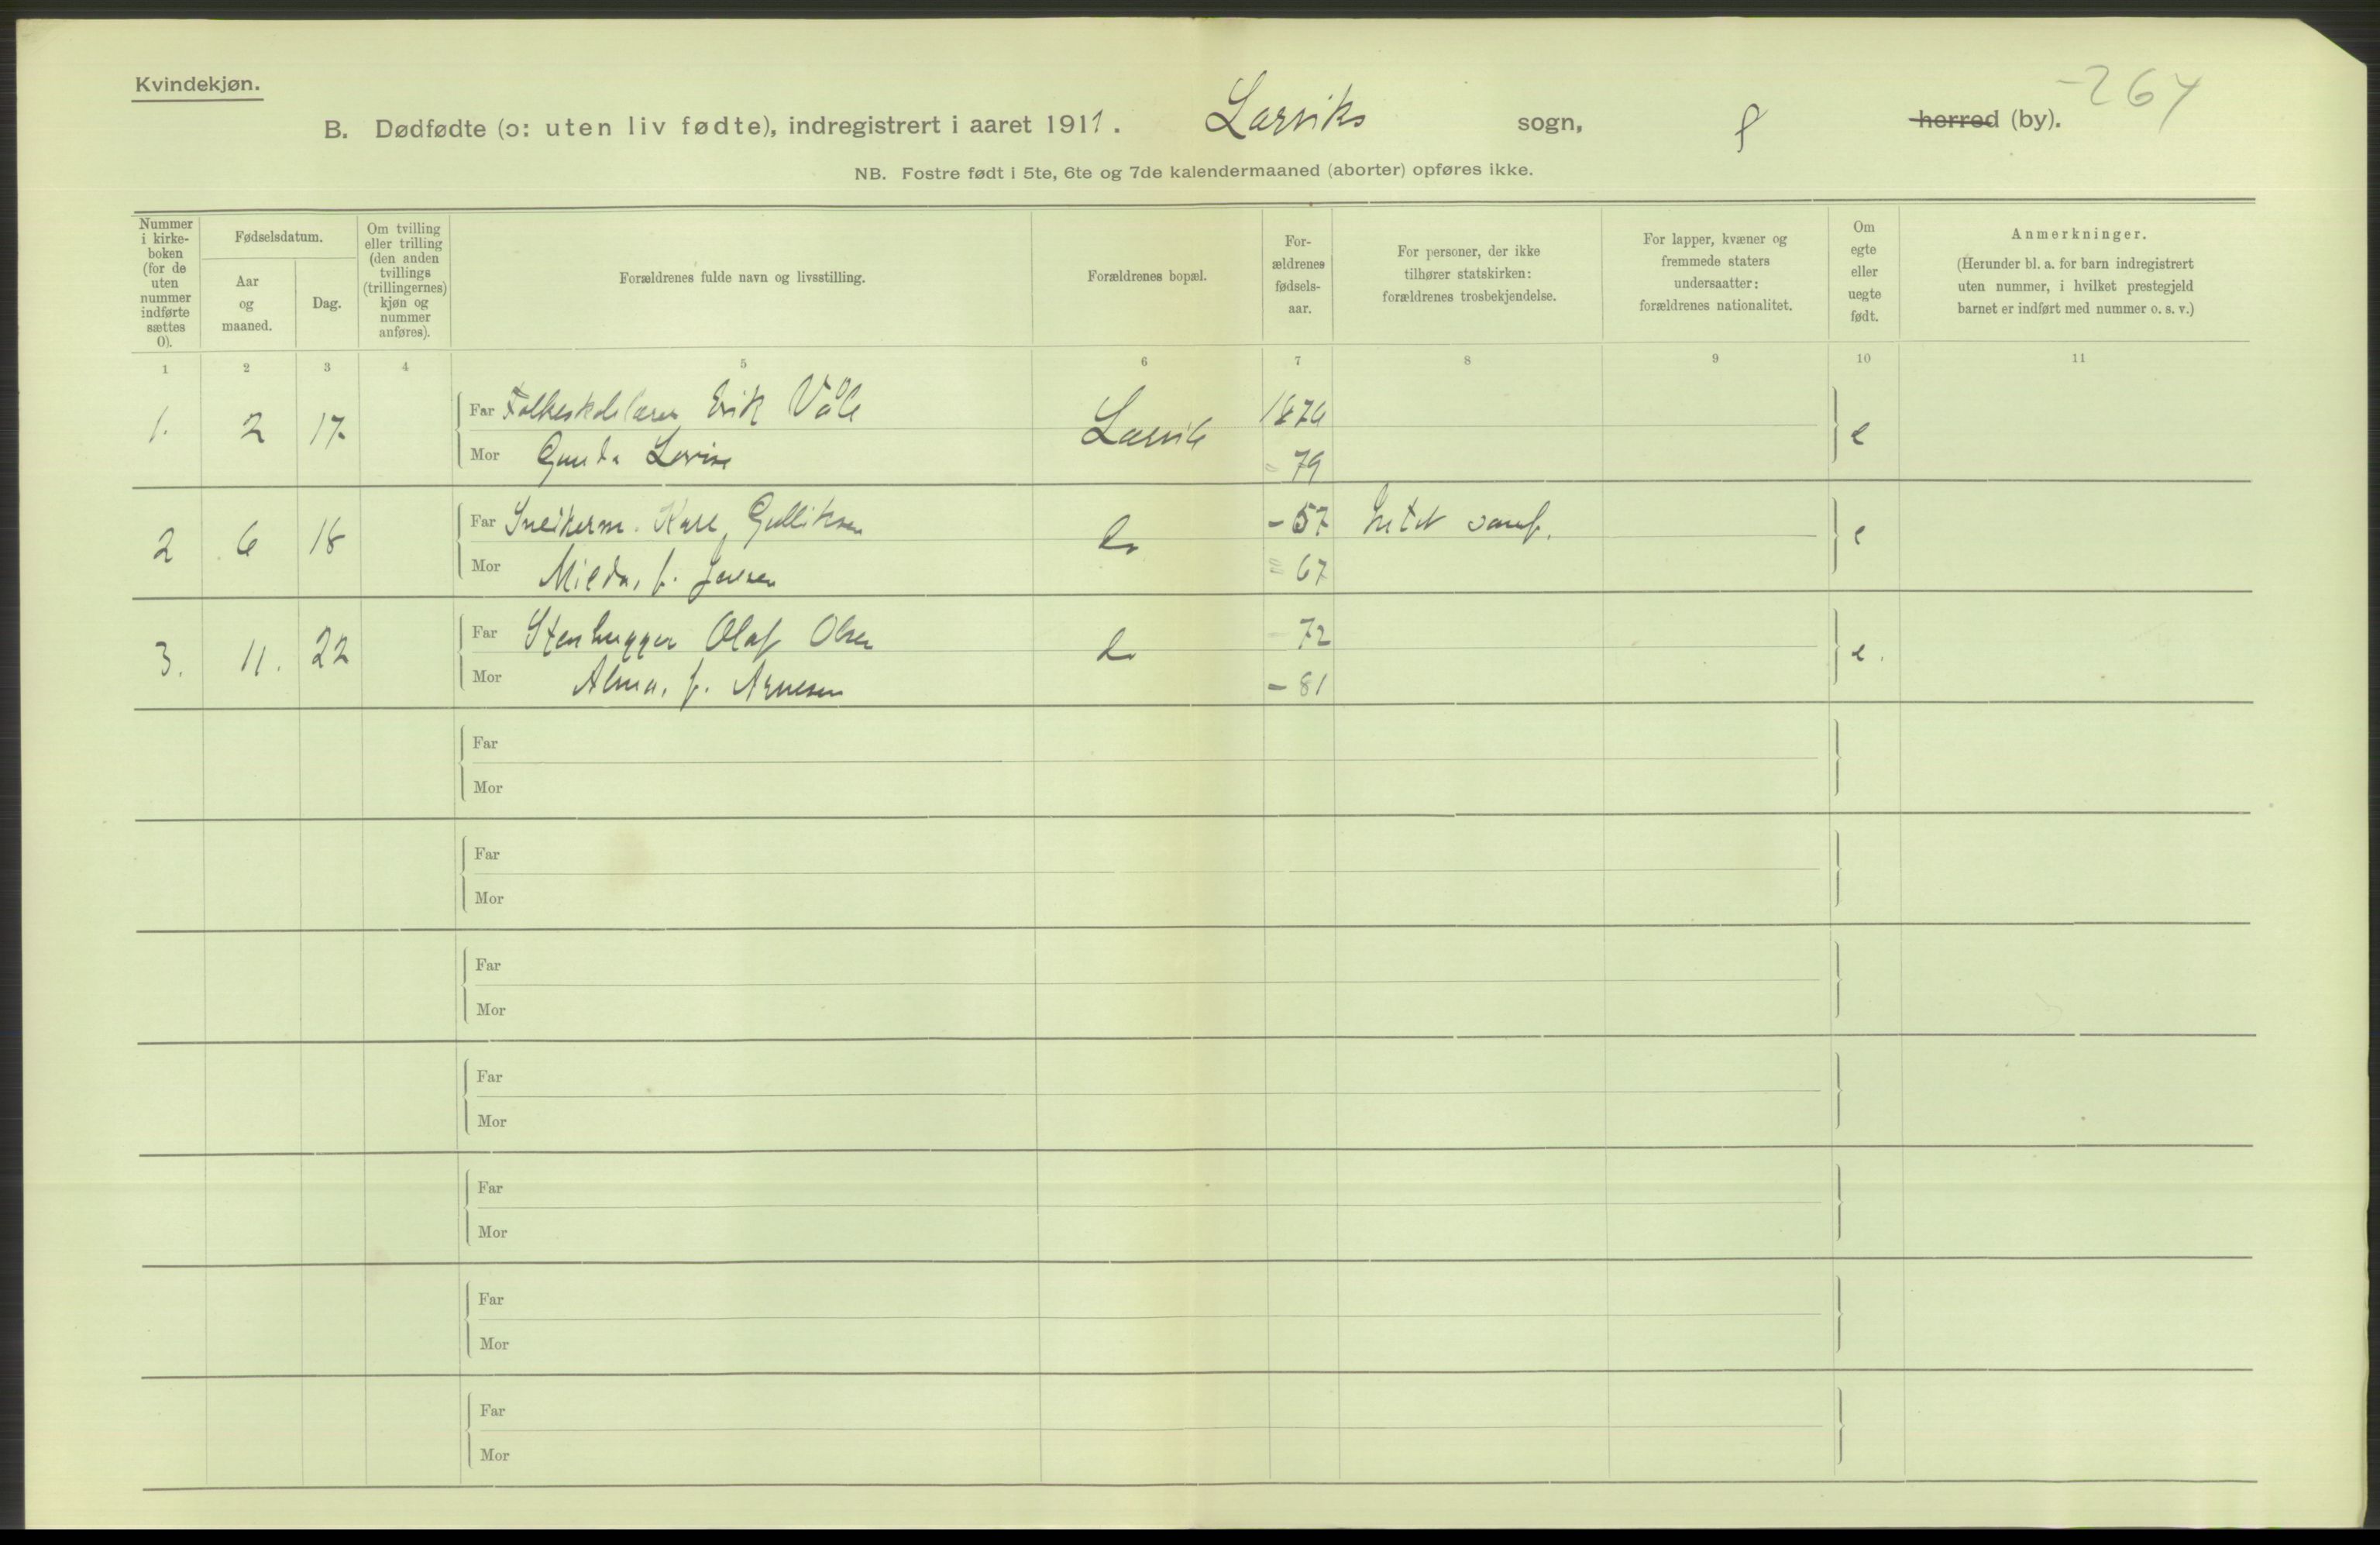 Kvindekjøn.
264
B. Dødfødte (ɔ: uten liv fødte), indregistrert i aaret 1911. Larviks sogn, herred (by).
NB. Fostre født i 5te, 6te og 7de kalendermaaned (aborter) opføres ikke.
Nummer i kirke-boken (for de uten nummer indførte sættes 0).
Fødselsdatum.
Aar og maaned.
Dag.
Om tvilling eller trilling (den anden tvillings (trillingernes) kjøn og nummer anføres).
Forældrenes fulde navn og livsstilling.
Forældrenes bopæl.
For-ældrenes fødsels-aar.
For personer, der ikke tilhører statskirken: forældrenes trosbekjendelse.
For lapper, kvæner og fremmede staters undersaatter: forældrenes nationalitet.
Om egte eller uegte født.
Anmerkninger.
(Herunder bl. a. for barn indregistrert uten nummer, i hvilket prestegjeld barnet er indført med nummer o. s. v.)
1 2 3 4 5 6 7 8 9 10 11
1. 2 17. Far Folkeskolelærer Erik Våle Larvik 1876 e
Mor Gunda Lovise = 79
2 6 18 Far Snekerm. Karl Gulliksen do - 57 e
Mor Milda, f. Jensen = 67
3. 11. 22 Far Stenhugger Olaf Olsen do 72 e.
Mor Alma, f. Arnesen - 81
Far
Mor
Far
Mor
Far
Mor
Far
Mor
Far
Mor
Far
Mor
Far
Mor